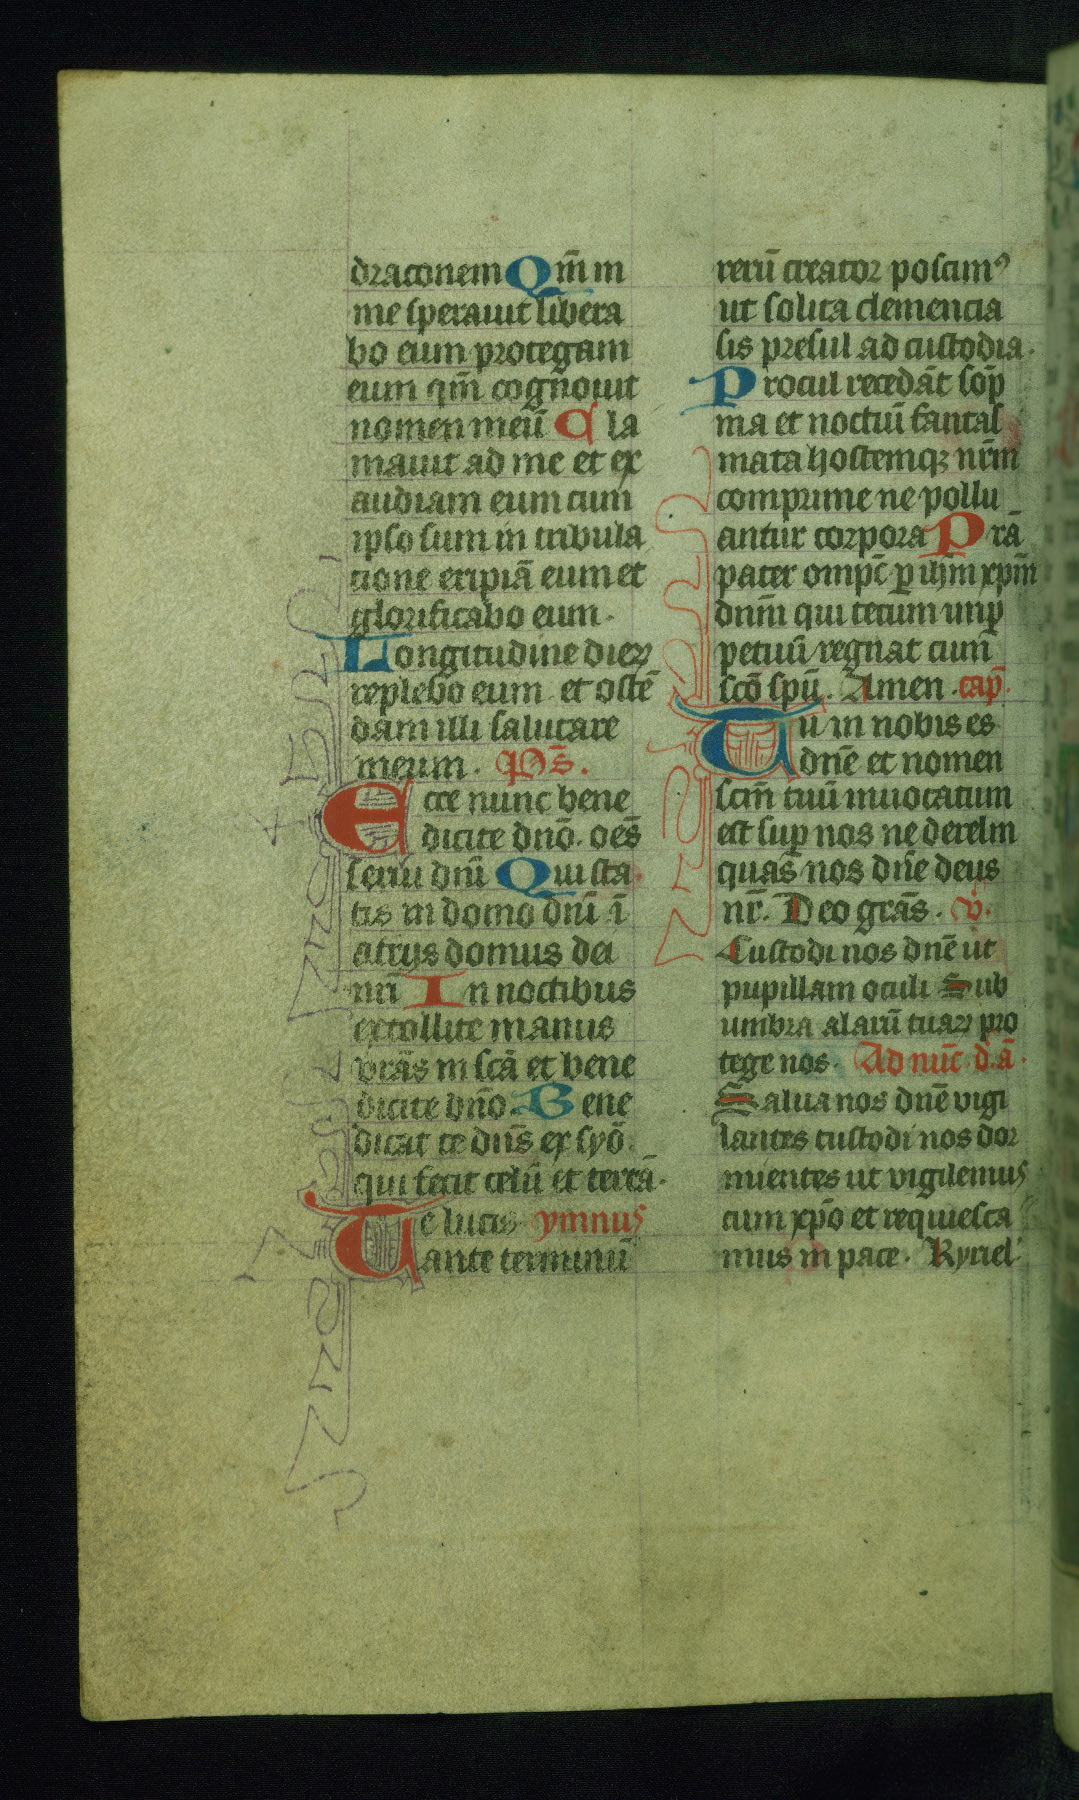 draconem Qm̄ in
me sperauit libera
bo eum protegam
eum qm̄ cognouit
nomen meū Cla
mauit ad me et ex
audiam eum cum
ipso sum in tribula
tione eripiā eum et
glorificabo eum.
Longitudine dieꝝ
replebo eum et ostē
dam illi salutare
meum. Ps̄.
Ecce nunc bene
dicite dn̄o. oēs
serui dn̄i Qui sta
tis in domo dn̄i ī
atrijs domus dei
nr̄i In noctibus
extollite manus
vr̄as in scā et bene
dicite dn̄o. Bene
dicat te dn̄s ex syō.
qui fecit celū et terrā.
Te lucis ymnus
ante terminū
rerū creator poscimꝰ
ut solita clemencia
sis presul ad custodia.
Procul recedāt sop̄
ma et noctiū fantas
mata hostemqꝫ nr̄m
comprime ne pollu
antur corpora Prā
pater omp̄c ꝑ ih̄m xp̄m
dn̄m qui tecum in ꝑ
petuū regnat cum
scō spū. Amen. cap̄.
Tu in nobis es
dn̄e et nomen
scm̄ tuū inuocatum
est suꝑ nos ne derelin
quas nos dn̄e deus
nr̄. Deo grās. v̄.
Custodi nos dn̄e ut
pupillam oculi Sub
umbra alarū tuaꝝ pro
tege nos. Ad nūc d. ā.
Salua nos dn̄e vigi
lantes custodi nos dor
mientes ut vigilemus
cum xp̄o et requiesca
mus in pace. Kyriel'